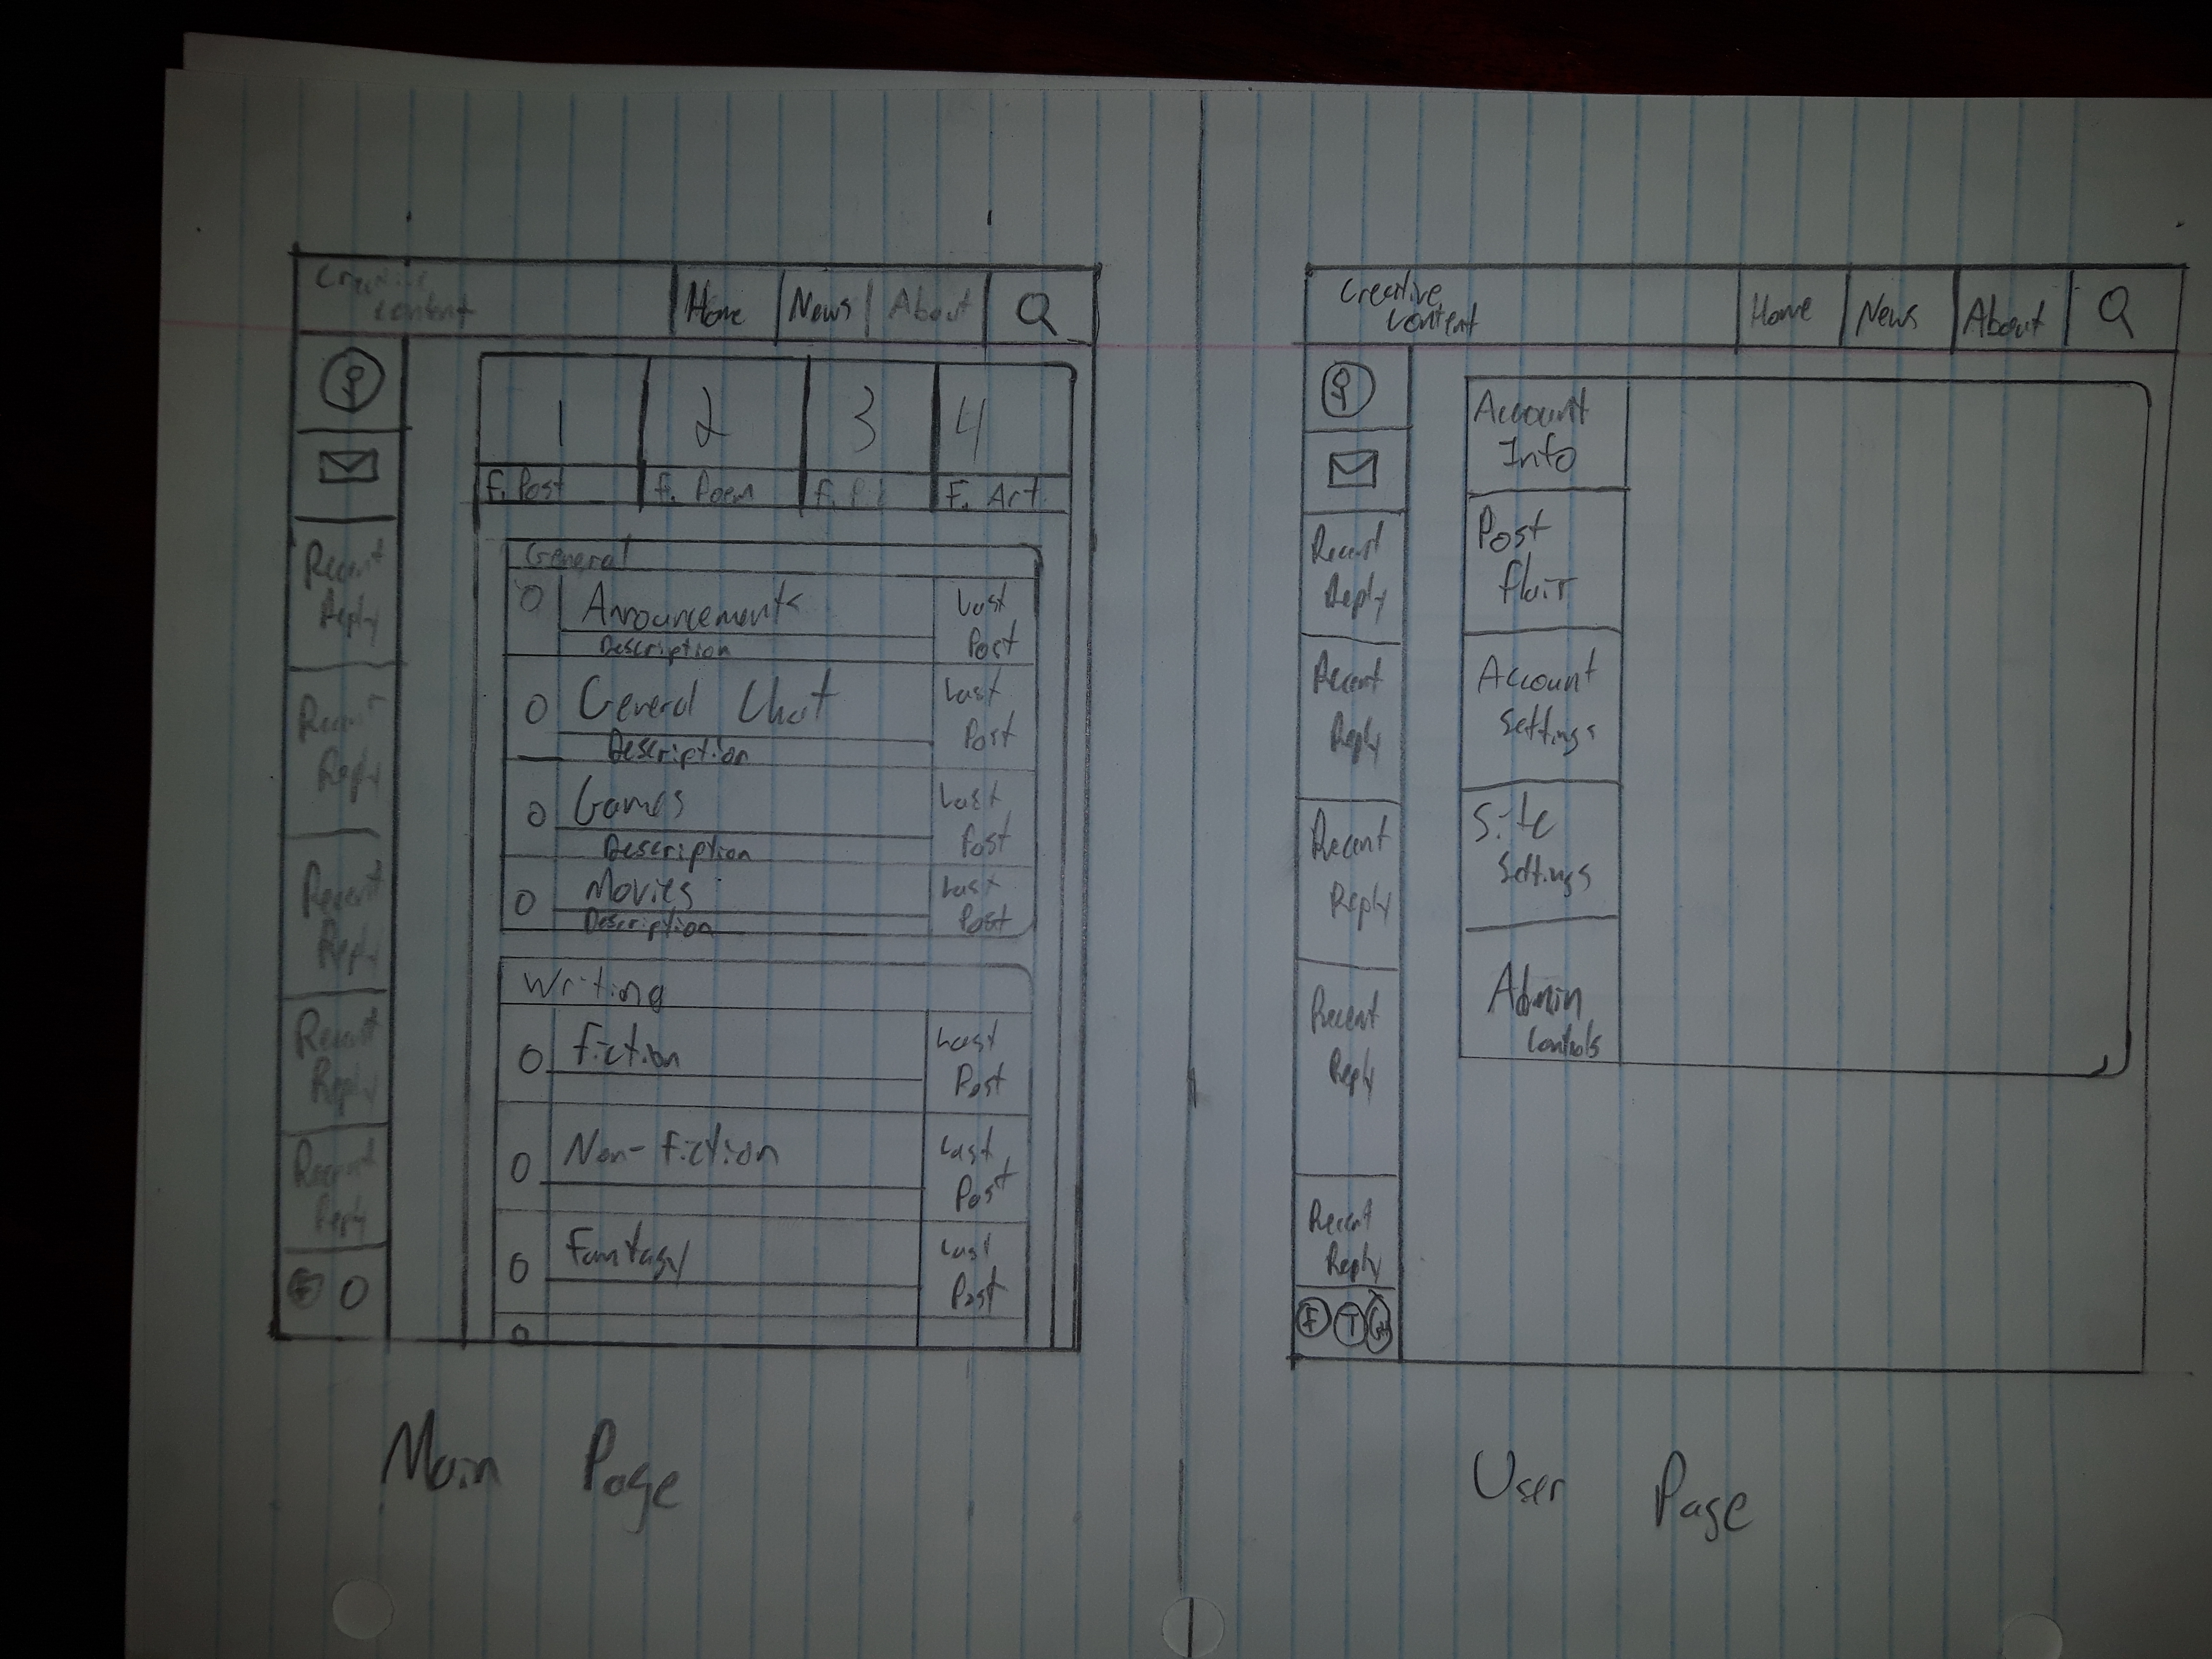 Creative
Content
Home
News
About
1
2
3
4
F. Post
F. Poem
F.
F. Art
Recent
Reply
Recent
Reply
Recent
Reply
Recent
Reply
Recent
Reply
General
Announcements
Description
Last
Post
General Chat
Description
Last
Post
Games
Description
Last
Post
Movies
Description
Last
Post
Writing
Fiction
Last
Post
Non-fiction
Last
Post
Fantasy
Last
Post
Main Page
Creative
Content
Home
News
About
Recent
Reply
Recent
Reply
Recent
Reply
Recent
Reply
Recent
Reply
F
T
Account
Info
Post
flair
Account
Settings
Site
Settings
Admin
Controls
User Page